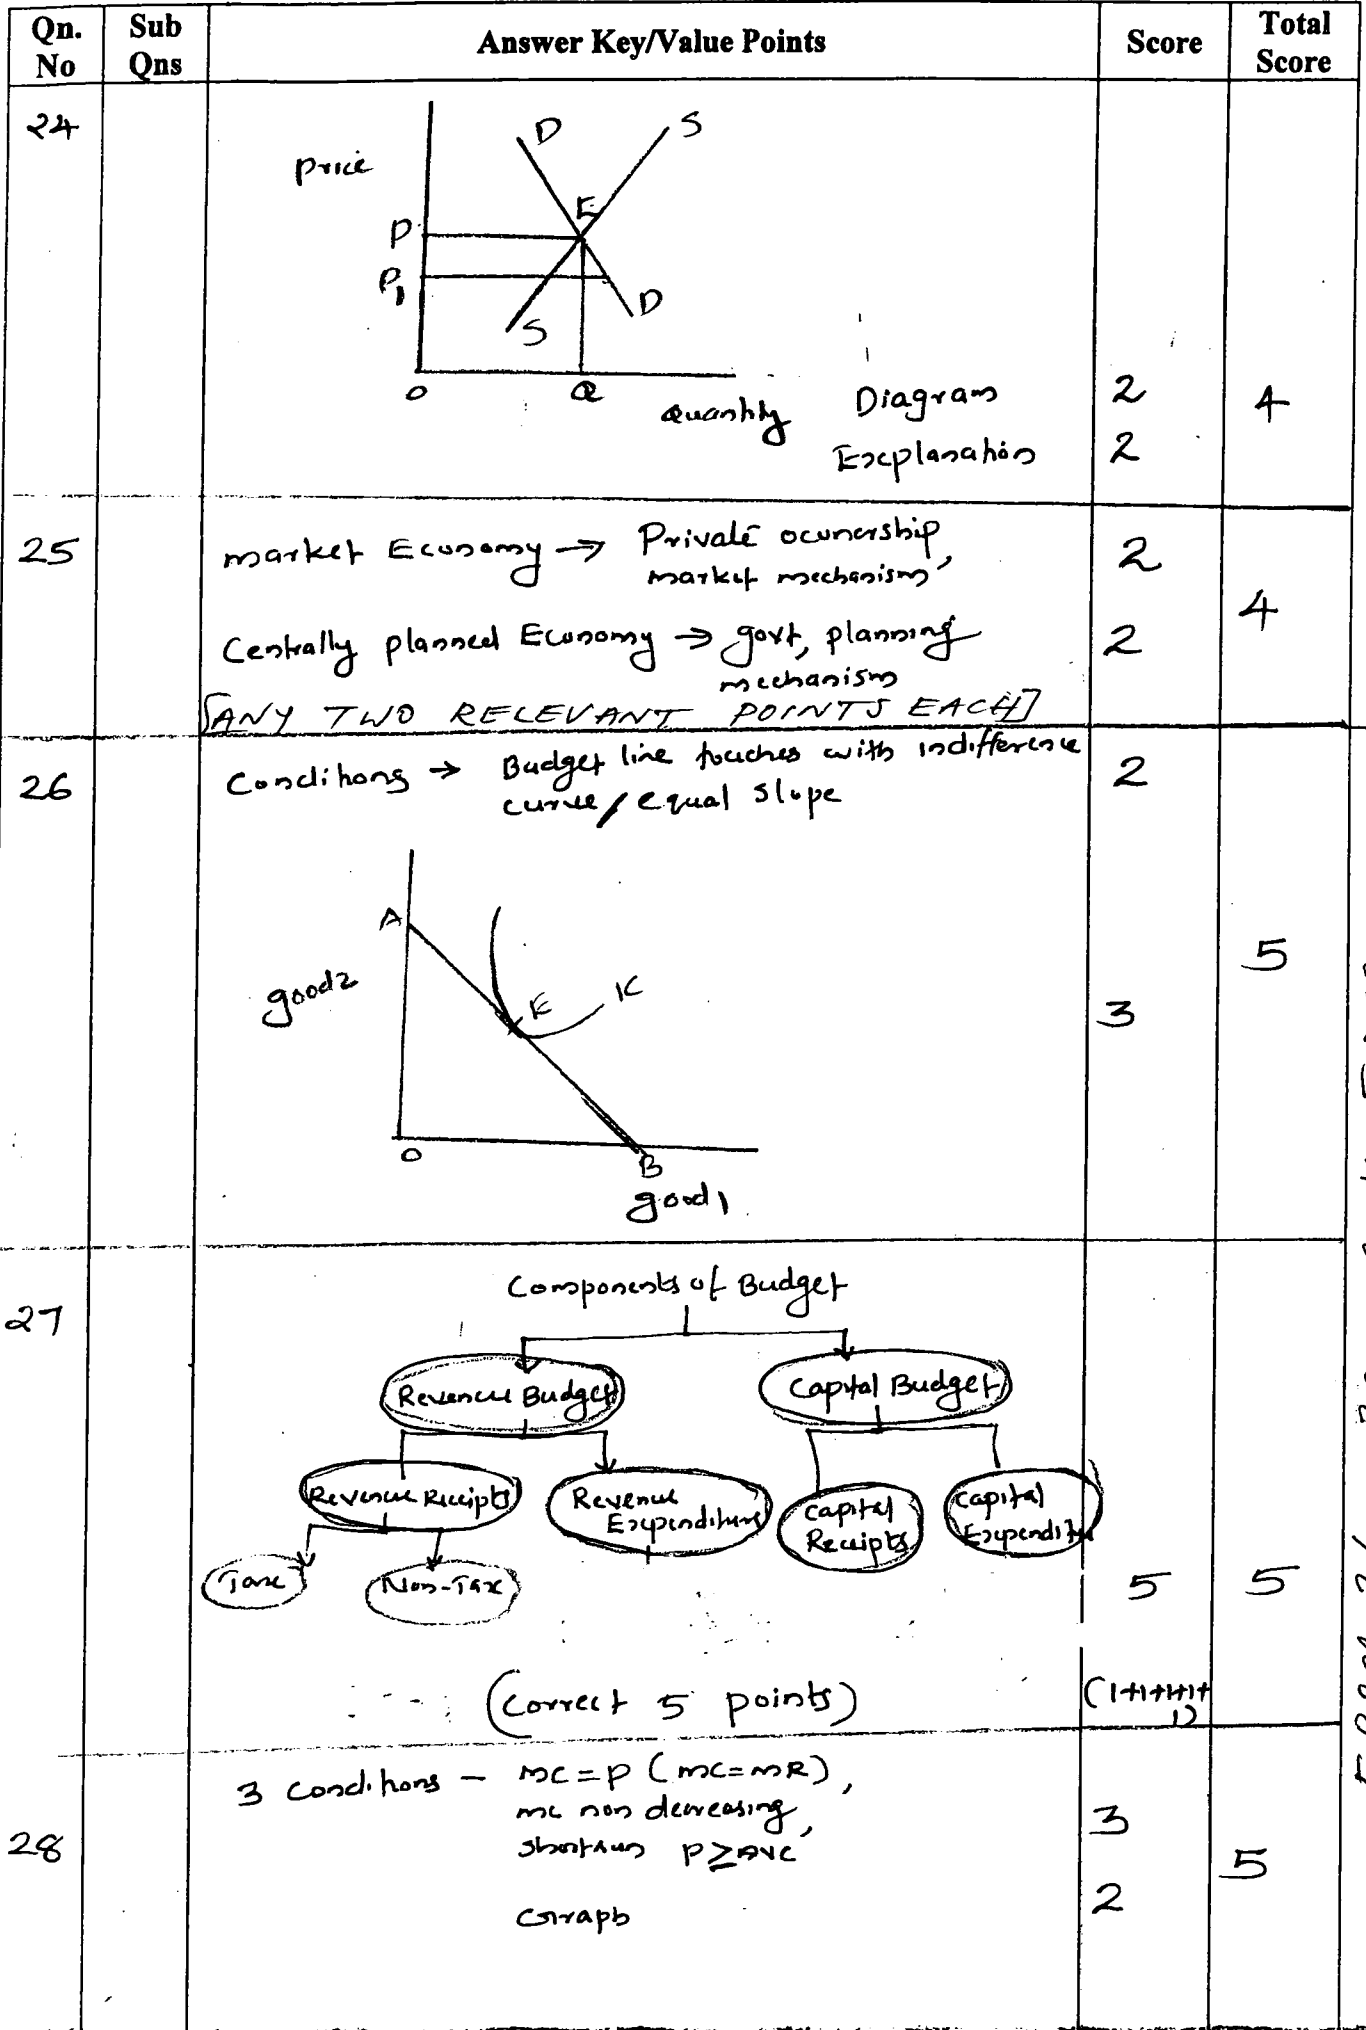 Qn. No
Sub Qns
Answer Key/Value Points
Score
Total Score
24
Price
D
S
E
P
P1
S
D
O
Q
Quantity
Diagram 2
Explanation 2
4
25
Market Economy → Private ownership,
market mechanism
2
Centrally planned Economy → govt, planning
mechanism
2
4
[ANY TWO RELEVANT POINTS EACH]
26
Conditions → Budget line touches with indifference
curve / equal slope
2
A
good2
E
IC
O
B
good1
3
5
27
Components of Budget
Revenue Budget
Capital Budget
Revenue Receipts
Revenue Expenditure
Capital Receipts
Capital Expenditure
Tax
Non-Tax
5
5
(Correct 5 points)
(1+1+1+1+1)
28
3 Conditions - MC=P (MC=MR),
MC non decreasing,
Shortrun P≥AVC
3
Graph
2
5